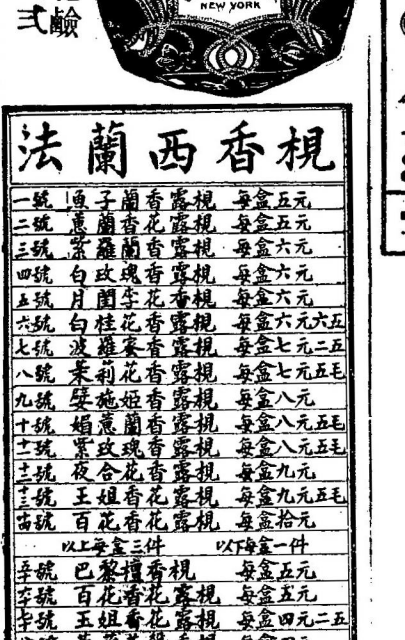 鹼
弍
NEW YORK
法蘭西香梘
一號 魚子蘭香露梘 每盒五元
二號 蕙蘭香花露梘 每盒五元
三號 紫羅蘭香露梘 每盒六元
四號 白玫瑰香露梘 每盒六元
五號 月閏李花香梘 每盒六元
六號 白桂花香露梘 每盒六元六五
七號 波羅蜜香露梘 每盒七元二五
八號 茉莉花香露梘 每盒七元五毛
九號 施姫香露梘 每盒八元
十號 媚蕙蘭香露梘 每盒八元五毛
十一號 紫玫瑰香露梘 每盒八元五毛
十二號 夜合花香露梘 每盒九元
十三號 王姐香花露梘 每盒九元五毛
十四號 百花香花露梘 每盒拾元
以上每盒三件 以下每盒一件
十五號 巴黎檀香梘 每盒五元
十六號 百花香花露梘 每盒五元
十七號 王姐香花露梘 每盒四元二五